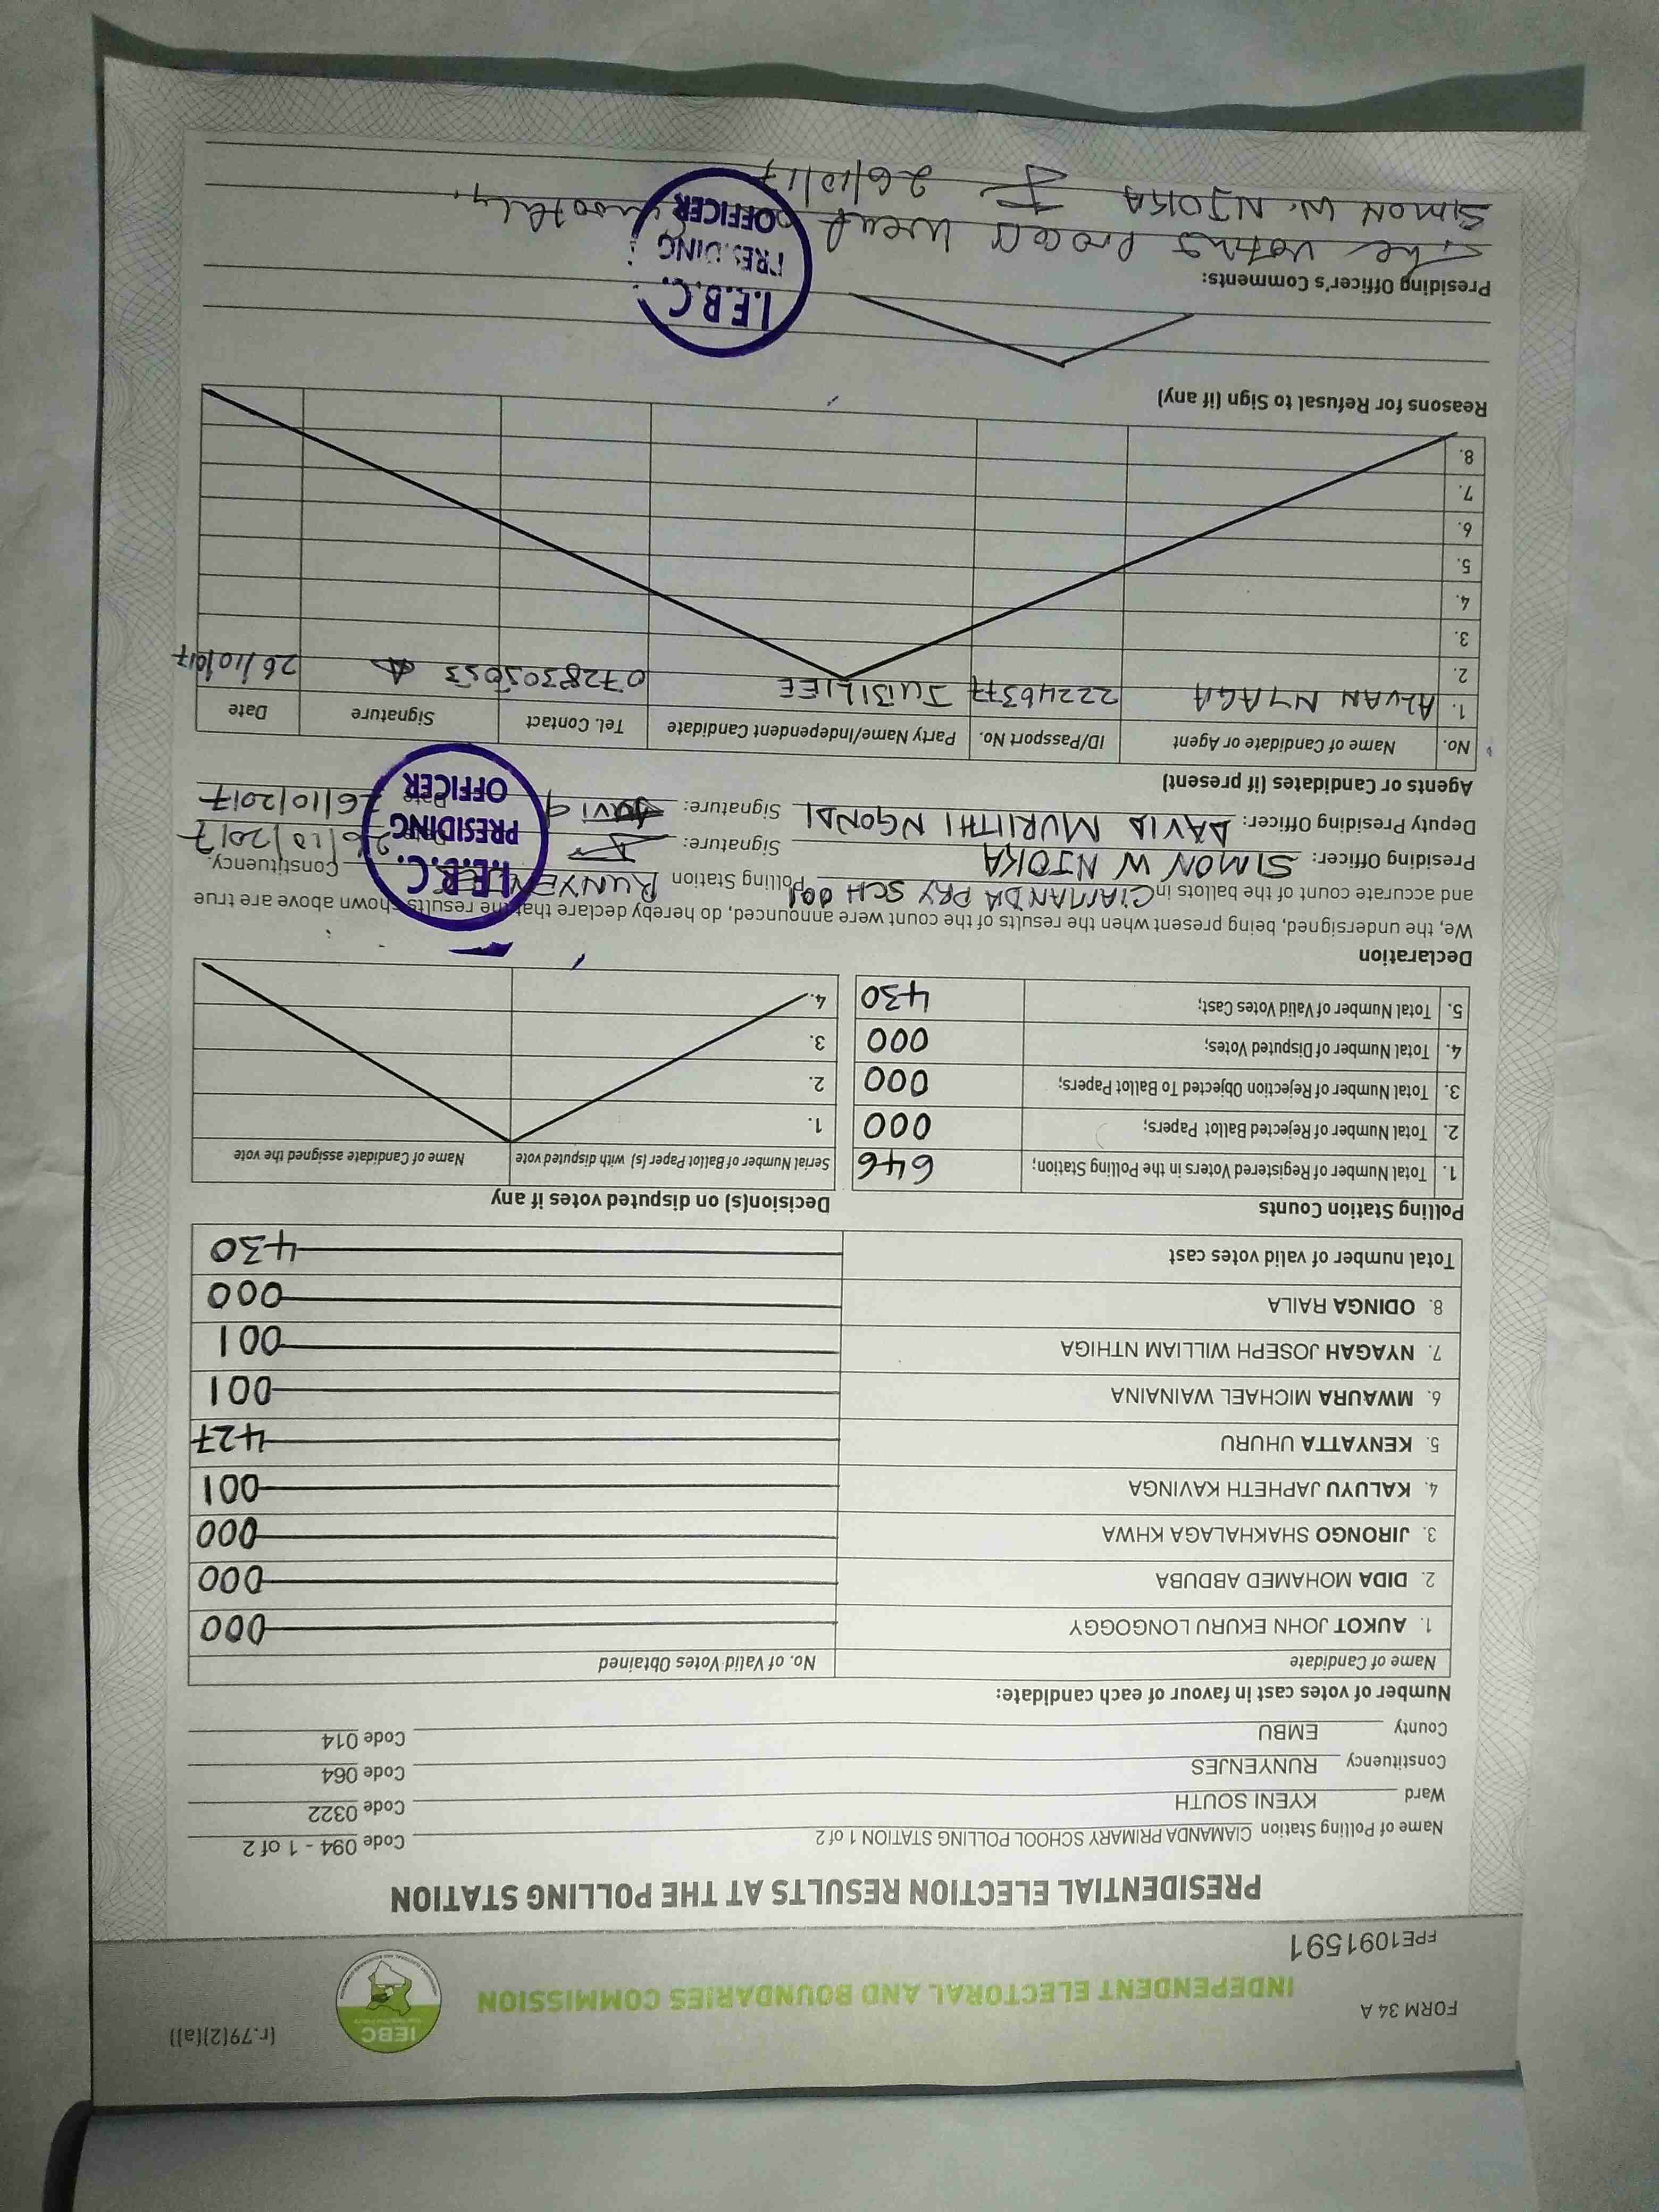 FORM 34 A
(r.79(2)(a))
IEBC
INDEPENDENT ELECTORAL AND BOUNDARIES COMMISSION
FPE1091591
PRESIDENTIAL ELECTION RESULTS AT THE POLLING STATION
Name of Polling Station CIAMANDA PRIMARY SCHOOL POLLING STATION 1 of 2 Code 094 - 1 of 2
Ward KYENI SOUTH Code 0322
Constituency RUNYENJES Code 064
County EMBU Code 014
Number of votes cast in favour of each candidate:
Name of Candidate No. of Valid Votes Obtained
1. AUKOT JOHN EKURU LONGOGGY 000
2. DIDA MOHAMED ABDUBA 000
3. JIRONGO SHAKHALAGA KHWA 000
4. KALUYU JAPHETH KAVINGA 001
5. KENYATTA UHURU 427
6. MWAURA MICHAEL WAINAINA 001
7. NYAGAH JOSEPH WILLIAM NTHIGA 001
8. ODINGA RAILA 000
Total number of valid votes cast 430
Polling Station Counts
1. Total Number of Registered Voters in the Polling Station; 646
2. Total Number of Rejected Ballot Papers; 000
3. Total Number of Rejection Objected To Ballot Papers; 000
4. Total Number of Disputed Votes; 000
5. Total Number of Valid Votes Cast; 430
Decision(s) on disputed votes if any
Serial Number of Ballot Paper (s) with disputed vote Name of Candidate assigned the vote
1.
2.
3.
4.
Declaration
We, the undersigned, being present when the results of the count were announced, do hereby declare that the results shown above are true
and accurate count of the ballots in CIAMANDA PRY SCH 001 Polling Station Constituency.
Presiding Officer: SIMON W NJOKA Signature: 26/10/2017
Deputy Presiding Officer: DAVID MURIITHI NGONDI Signature: David Date 26/10/2017
I.E.B.C.
PRESIDING
OFFICER
Agents or Candidates (if present)
No. Name of Candidate or Agent ID/Passport No. Party Name/Independent Candidate Tel. Contact Signature Date
1. ALVAN NYAGA 22246377 JUBILIEE 0728305053 26/10/017
2.
3.
4.
5.
6.
7.
8.
Reasons for Refusal to Sign (if any)
Presiding Officer's Comments:
The voting process went smoothly.
SIMON W. NJOKA 26/10/17
I.E.B.C.
PRESIDING
OFFICER